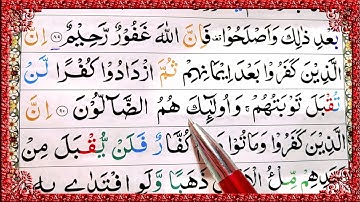 بَعْدِ ذٰلِكَ وَاَصْلَحُوْا ۟ فَاِنَّ اللّٰهَ غَفُوْرٌ رَّحِيْمٌ ﴿۸۹﴾ اِنَّ
الَّذِيْنَ كَفَرُوْا بَعْدَ اِيْمَانِهِمْ ثُمَّ ازْدَادُوْا كُفْرًا لَّنْ
تُقْبَلَ تَوْبَتُهُمْ ۚ وَاُولٰٓئِكَ هُمُ الضَّآلُّوْنَ ﴿۹۰﴾ اِنَّ
الَّذِيْنَ كَفَرُوْا وَمَاتُوْا كُفَّارٌ فَلَنْ يُّقْبَلَ مِنْ
اَحَدِهِمْ مِّلْءُ الْاَرْضِ ذَهَبًا وَّلَوِ افْتَدٰى بِهٖ